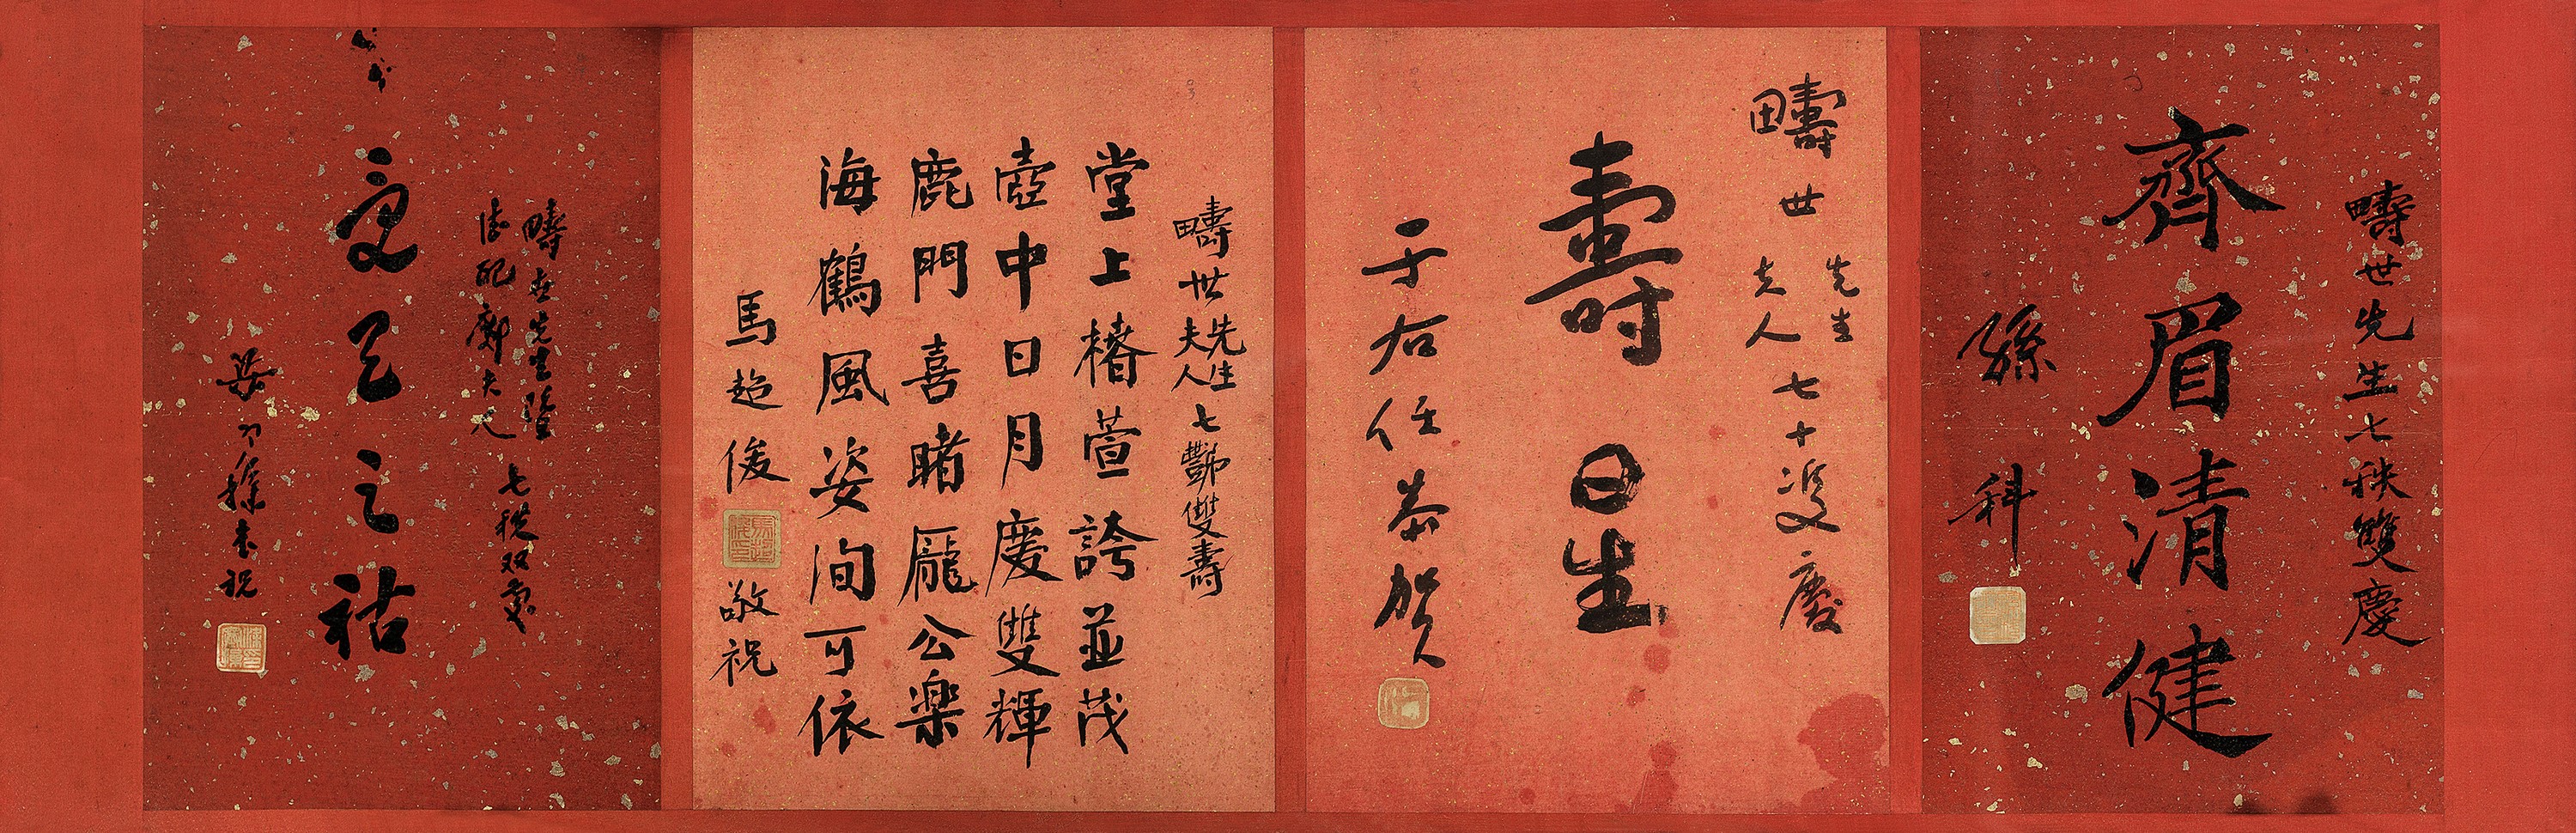 疇世先生七秩雙慶
齊眉清健
孫科
疇世先生夫人七十双慶
壽
日生
于右任恭賀
疇世先生夫人七豑雙壽
堂上椿萱誇並茂
壺中日月慶雙輝
鹿門喜睹龐公樂
海鶴風姿洵可依
馬超俊
敬祝
疇世先生暨
德配鄺夫人
七秩双慶
受天之祜
梁寒操敬祝